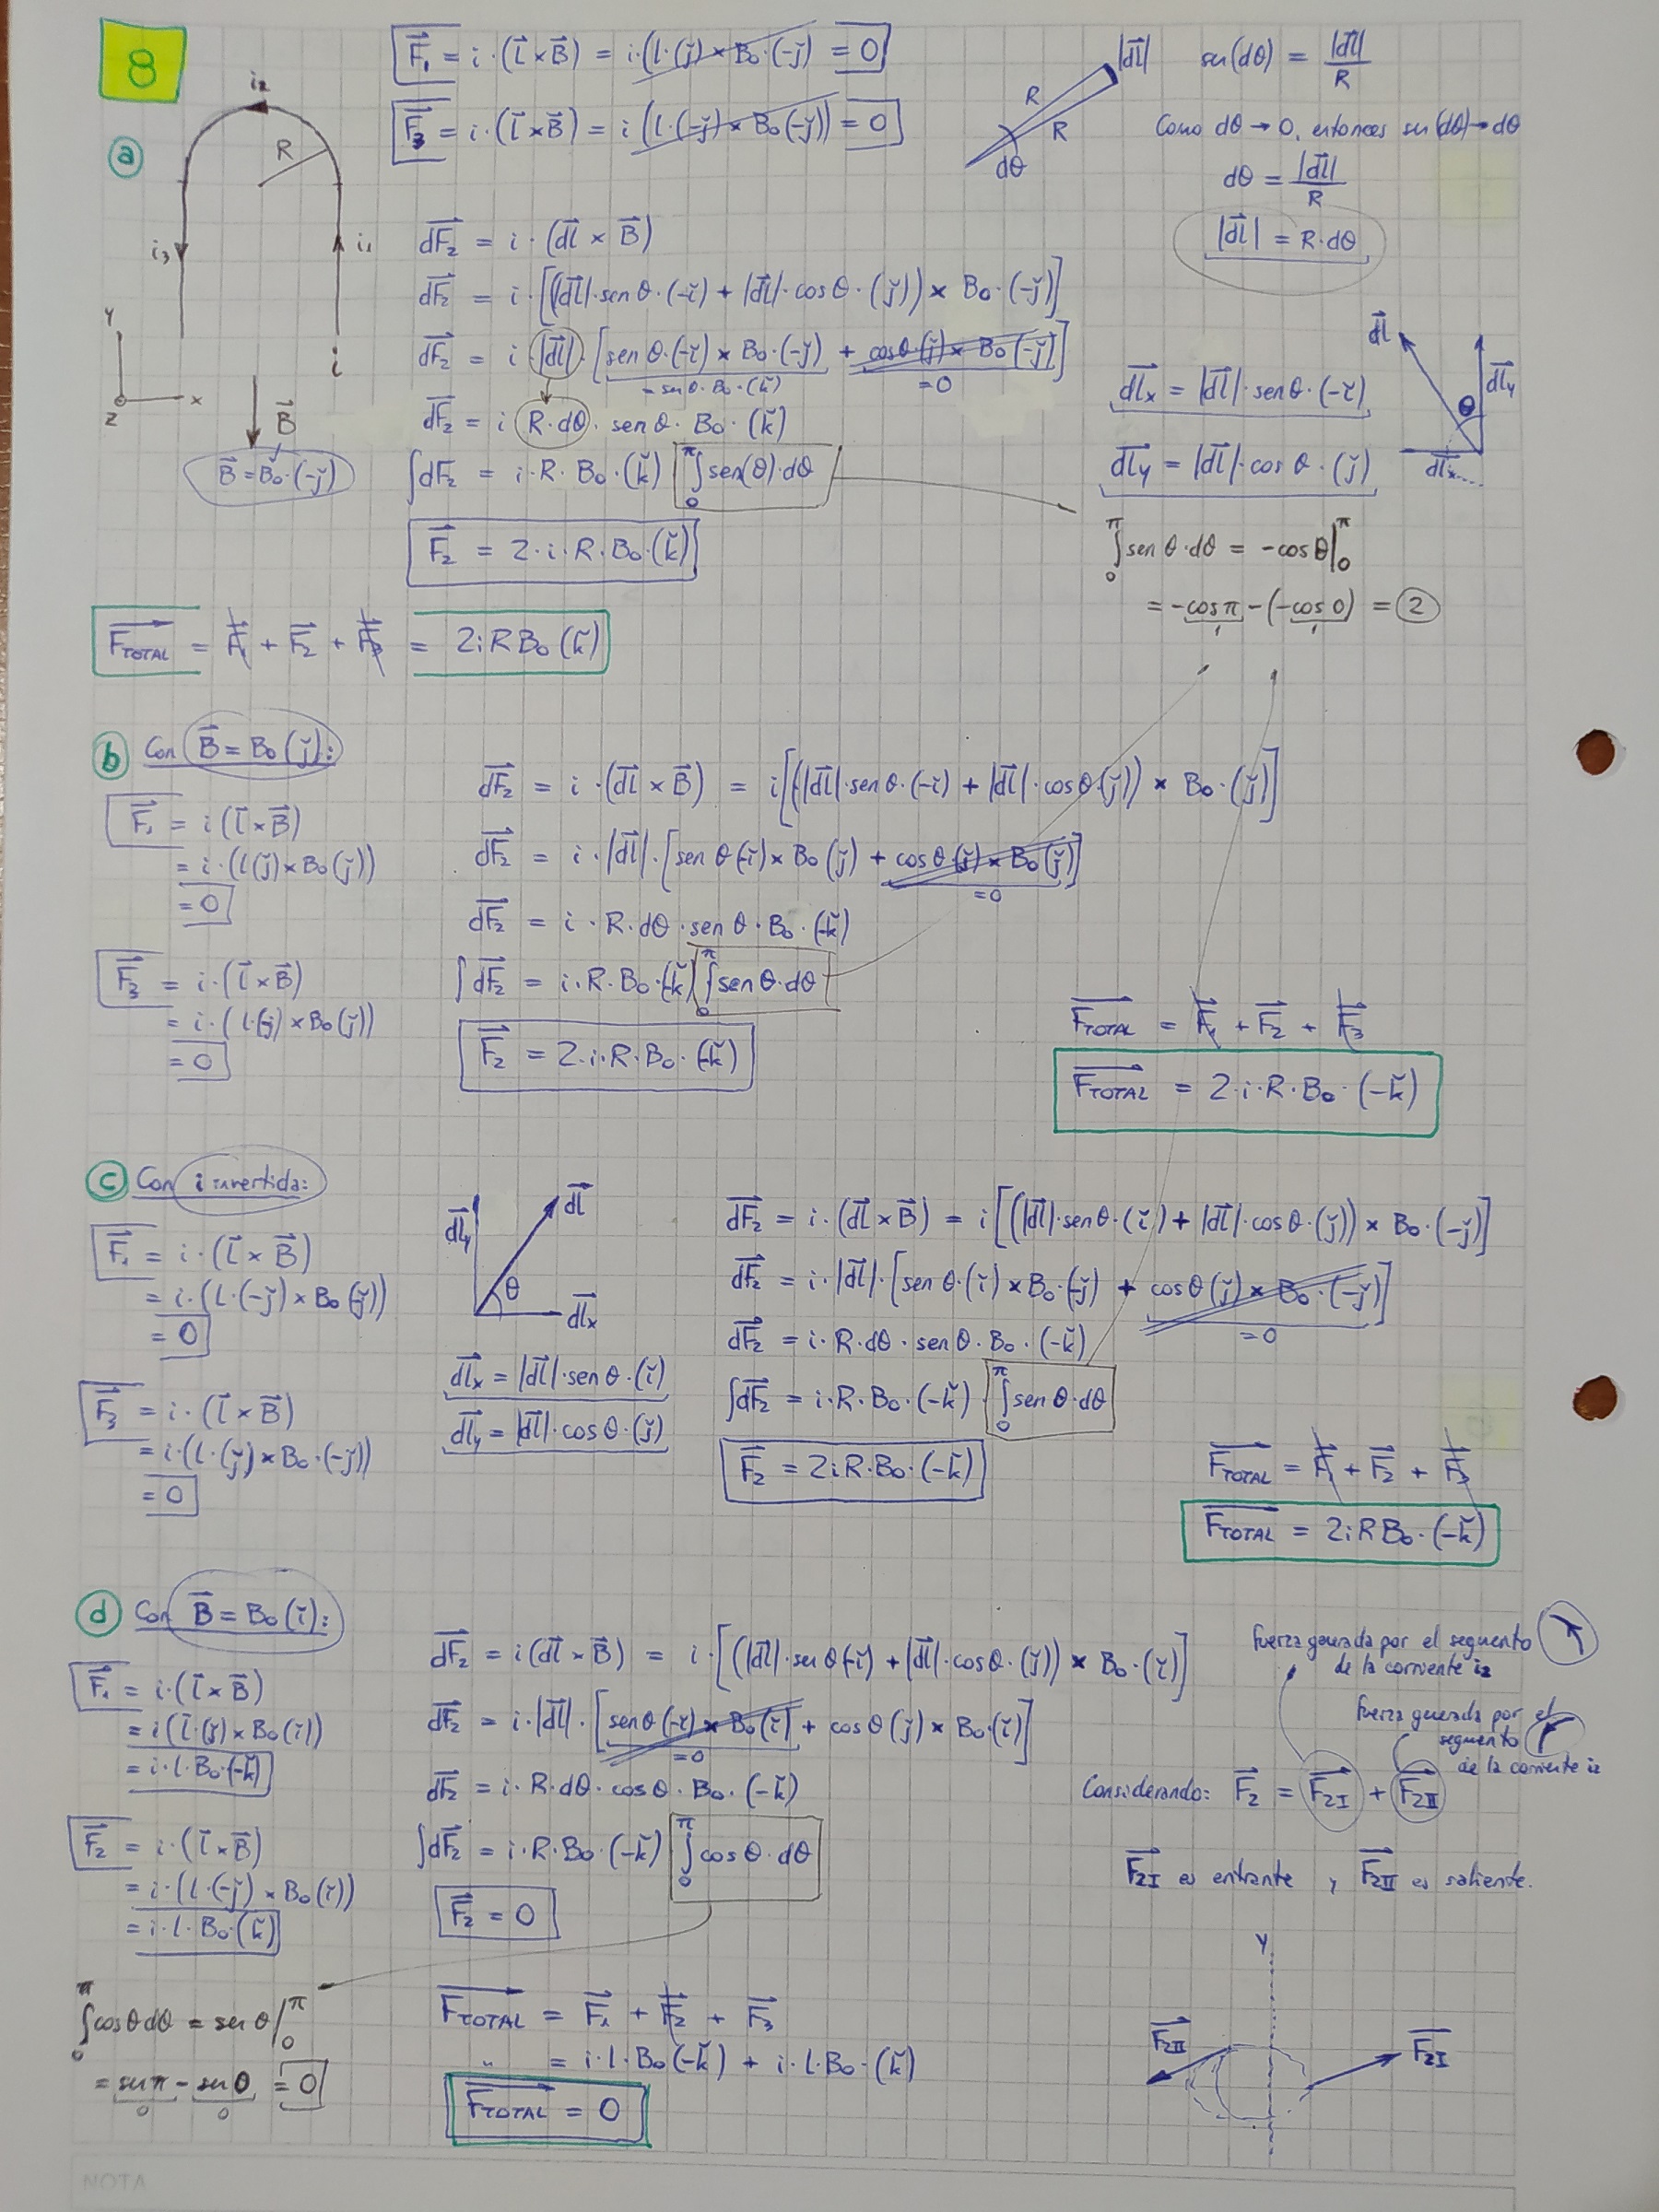 8
F₁ = i·(l × B) = i·(l·(ǰ) × B₀·(-ǰ) = 0
F₃ = i·(l × B) = i(l·(-ǰ) × B₀(-ǰ)) = 0
i₂
R
i₃
i₁
i
a
Y
x
Z
B
B = B₀·(-ǰ)
R
R
dθ
|dl|
sen(dθ) = |dl| / R
Como dθ → 0, entonces sen(dθ) → dθ
dθ = |dl| / R
|dl| = R·dθ
dF₂ = i·(dl × B)
dF₂ = i·[(|dl|·senθ·(-ǐ) + |dl|·cosθ·(ǰ)) × B₀·(-ǰ)]
dF₂ = i·|dl|·[senθ·(-ǐ) × B₀·(-ǰ) + cosθ·(ǰ) × B₀(-ǰ)]
= senθ·B₀·(ǩ)
= 0
dF₂ = i·R·dθ·senθ·B₀·(ǩ)
∫dF₂ = i·R·B₀·(ǩ) ∫₀^π sen(θ)·dθ
F₂ = 2·i·R·B₀·(ǩ)
dl
dly
θ
dlx
dlx = |dl|·senθ·(-ǐ)
dly = |dl|·cosθ·(ǰ)
∫₀^π senθ·dθ = -cosθ|₀^π
= -cosπ - (-cos0) = 2
F_TOTAL = F₁ + F₂ + F₃ = 2iRB₀(ǩ)
b Con B = B₀(ǰ):
F₁ = i(l × B)
= i·(l(ǰ) × B₀(ǰ))
= 0
F₃ = i·(l × B)
= i·(l·(-ǰ) × B₀(ǰ))
= 0
dF₂ = i·(dl × B) = i[(|dl|·senθ·(-ǐ) + |dl|·cosθ·(ǰ)) × B₀·(ǰ)]
dF₂ = i·|dl|·[senθ(-ǐ) × B₀(ǰ) + cosθ(ǰ) × B₀(ǰ)]
= 0
dF₂ = i·R·dθ·senθ·B₀·(-ǩ)
∫dF₂ = i·R·B₀·(-ǩ) ∫₀^π senθ·dθ
F₂ = 2·i·R·B₀·(-ǩ)
F_TOTAL = F₁ + F₂ + F₃
F_TOTAL = 2·i·R·B₀·(-ǩ)
c Con i invertida:
F₁ = i·(l × B)
= i·(l·(-ǰ) × B₀(ǰ))
= 0
F₃ = i·(l × B)
= i·(l·(ǰ) × B₀·(-ǰ))
= 0
dly
dl
θ
dlx
dlx = |dl|·senθ·(ǐ)
dly = |dl|·cosθ·(ǰ)
dF₂ = i·(dl × B) = i[(|dl|·senθ·(ǐ) + |dl|·cosθ·(ǰ)) × B₀·(-ǰ)]
dF₂ = i·|dl|·[senθ·(ǐ) × B₀·(-ǰ) + cosθ(ǰ) × B₀·(-ǰ)]
= 0
dF₂ = i·R·dθ·senθ·B₀·(-ǩ)
∫dF₂ = i·R·B₀·(-ǩ)·∫₀^π senθ·dθ
F₂ = 2iR·B₀·(-ǩ)
F_TOTAL = F₁ + F₂ + F₃
F_TOTAL = 2iRB₀·(-ǩ)
d Con B = B₀(ǐ):
F₁ = i·(l × B)
= i(l·(ǰ) × B₀(ǐ))
= i·l·B₀·(-ǩ)
F₂ = i·(l × B)
= i·(l·(-ǰ) × B₀(ǐ))
= i·l·B₀·(ǩ)
dF₂ = i(dl × B) = i·[(|dl|·senθ(-ǐ) + |dl|·cosθ·(ǰ)) × B₀·(ǐ)]
dF₂ = i·|dl|·[senθ(-ǐ) × B₀(ǐ) + cosθ(ǰ) × B₀·(ǐ)]
= 0
dF₂ = i·R·dθ·cosθ·B₀·(-ǩ)
∫dF₂ = i·R·B₀·(-ǩ)·∫₀^π cosθ·dθ
F₂ = 0
Fuerza generada por el segmento
de la corriente i₂
Fuerza generada por el
segmento
de la corriente i₂
Considerando: F₂ = F₂I + F₂II
F₂I es entrante y F₂II es saliente.
∫₀^π cosθdθ = senθ|₀^π
= senπ - sen0 = 0
0 0
F_TOTAL = F₁ + F₂ + F₃
" = i·l·B₀(-ǩ) + i·l·B₀·(ǩ)
F_TOTAL = 0
Y
F₂II
F₂I
NOTA